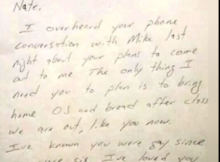 Nate,
I overheard your phone
conversation with Mike last
night about your plans to come
out to me. The only thing I
need you to plan is to bring
home OJ and bread after class
we are out, like you now.
I've known you were gay since
you were six, I've loved you